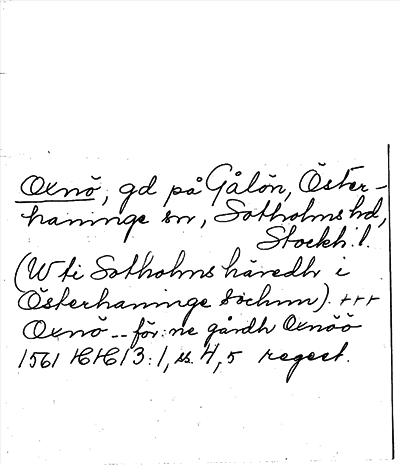 Oxnö, gd på Gålön, Öster-
haninge sn, Sotholms hd,
Stockh. l.
(W ti Sotholms häredh i
Österhaninge sochnn). +++
Oxnö -- för:ne gårdh Oxnöö
1561 HH 3:1, ss. 4, 5 regest.